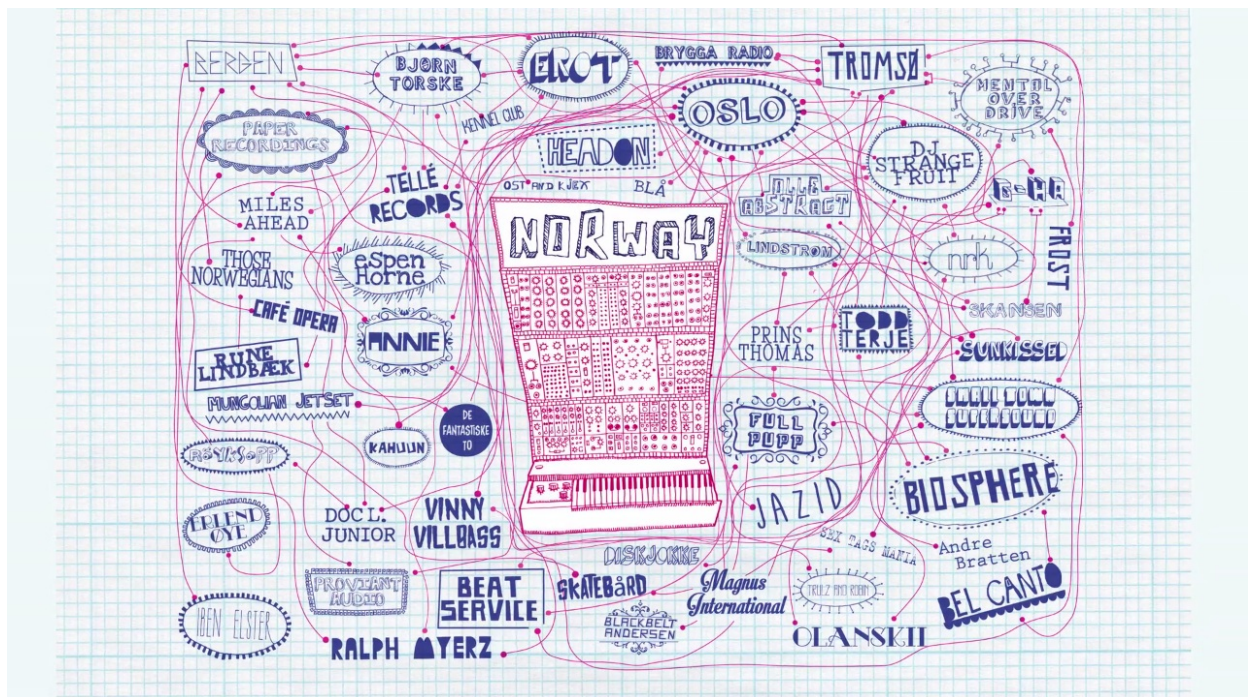 BERGEN
BJØRN
TORSKE
EROT
BRYGGA RADIO
TROMSØ
MENTAL
OVER
DRIVE
KENNEL CLUB
OSLO
PAPER
RECORDINGS
HEADON
DJ
STRANGE
FRUIT
TELLÉ
RECORDS
OST AND KJEX
BLÅ
OLLE
ABSTRACT
A-HA
MILES
AHEAD
NORWAY
LINDSTRØM
nrk
FROST
THOSE
NORWEGIANS
espen
Horne
CAFÉ OPERA
SKANSEN
ANNIE
PRINS
THOMAS
TODD
TERJE
SUNKISSED
RUNE
LINDBÆK
MUNGOLIAN JETSET
SMALL TOWN
SUPERSOUND
DE
FANTASTISKE
TO
KAHUUN
FULL
PUPP
RÖYKSOPP
BIOSPHERE
ERLEND
ØYE
DOC L.
JUNIOR
VINNY
VILLBASS
JAZID
SEX TAGS MANIA
Andre
Bratten
DISKJOKKE
PROVIANT
AUDIO
BEAT
SERVICE
SKATEBÅRD
Magnus
International
TRULZ AND ROBIN
BEL CANTO
IBEN ELSTER
BLACKBELT
ANDERSEN
RALPH MYERZ
OLANSKII